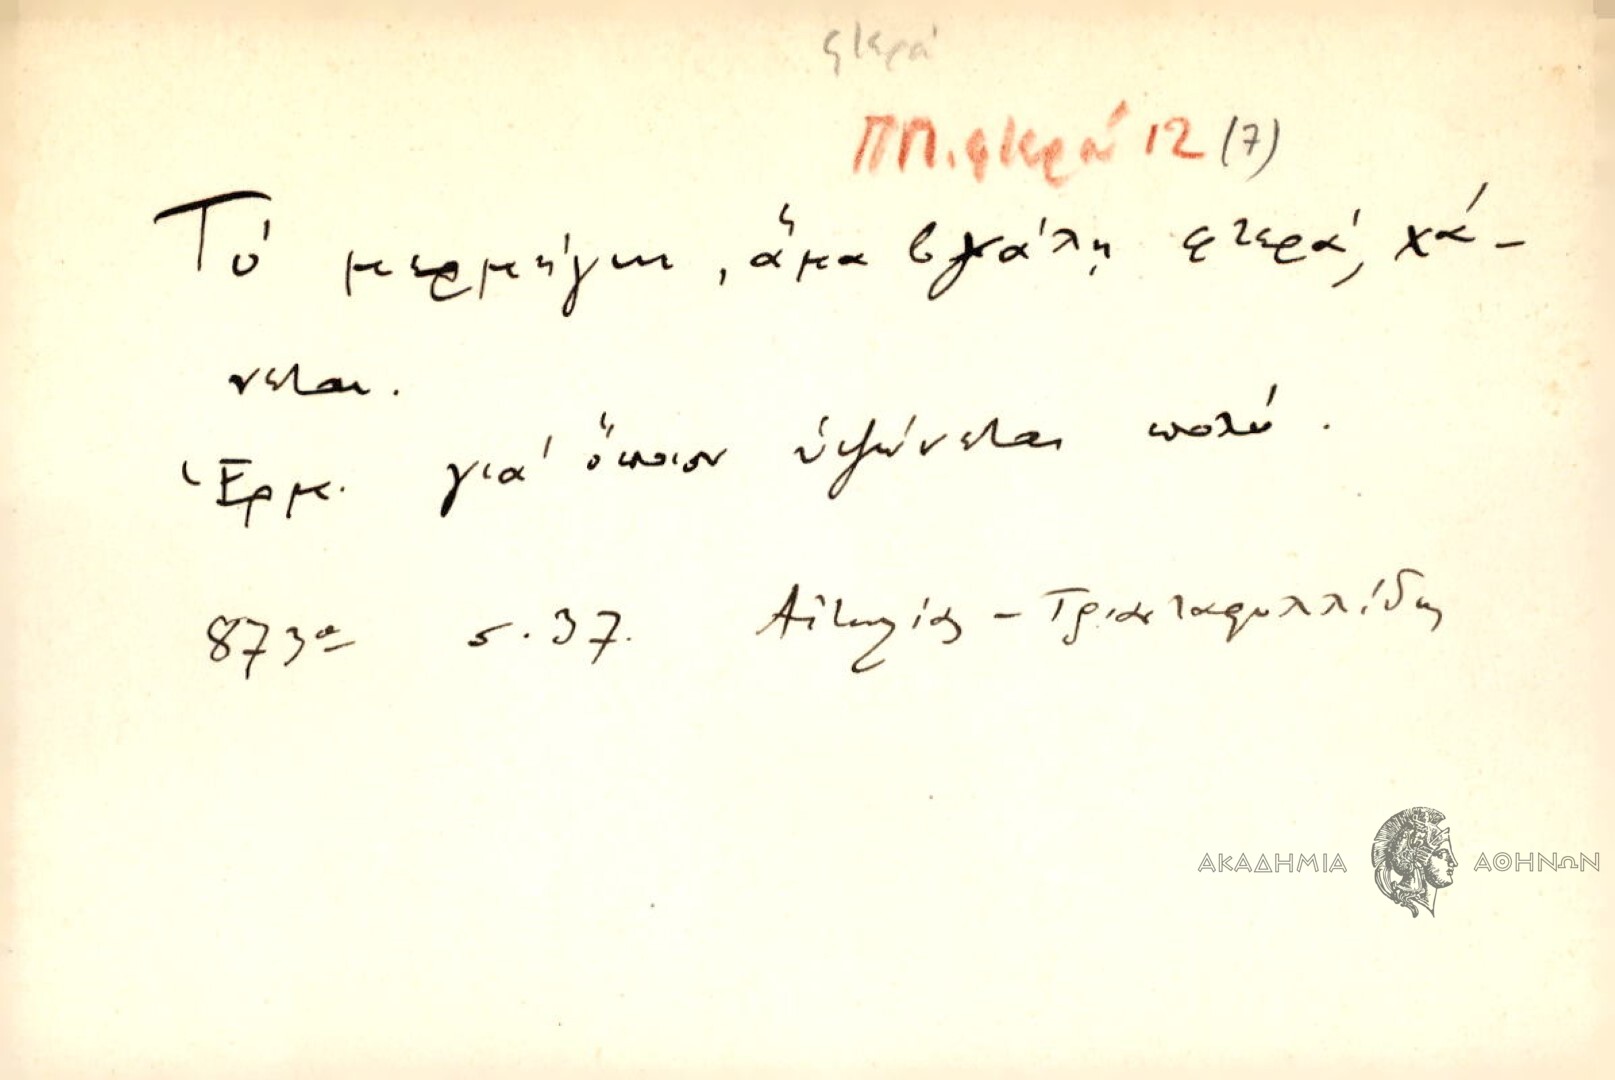 φτερά
ΠΠ. φτερά 12 (7)
Τό μερμήγκι, ἅμα βγάλῃ φτερά, χά-
νεται.
Ἑρμ. γιά ὅποιον ὑψώνεται πολύ.
873α σ. 37. Αἰτωλίας - Τριανταφυλλίδης
ΑΚΑΔΗΜΙΑ ΑΘΗΝΩΝ